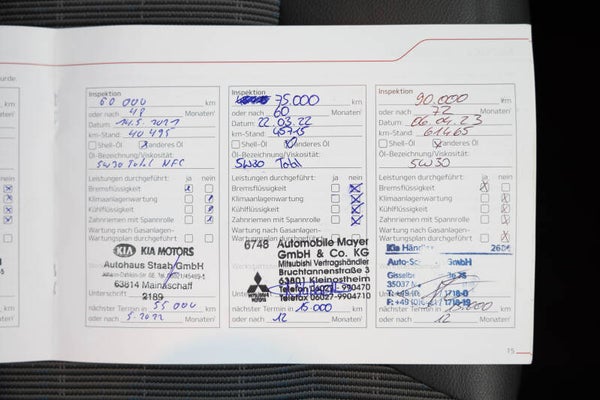 km
Monaten
ja nein
Inspektion
60 000 km
oder nach 48 Monaten
Datum 14.5.2021
km-Stand: 40 495
Shell-Öl anderes Öl
Öl-Bezeichnung/Viskosität:
5W30 Total NFC
Leistungen durchgeführt: ja nein
Bremsflüssigkeit
Klimaanlagenwartung
Kühlflüssigkeit
Zahnriemen mit Spannrolle
Wartung nach Gasanlagen-
Wartungsplan durchgeführt
KIA KIA MOTORS
Autohaus Staab GmbH
63814 Mainaschaff
2189
Unterschrift
nächster Termin in 55 000 km
oder nach 5.2022 Monaten
Inspektion
75.000 km
oder nach 60 Monaten
Datum 22.03.22
km-Stand: 45715
Shell-Öl anderes Öl
Öl-Bezeichnung/Viskosität:
5W30 Total
Leistungen durchgeführt: ja nein
Bremsflüssigkeit
Klimaanlagenwartung
Kühlflüssigkeit
Zahnriemen mit Spannrolle
Wartung nach Gasanlagen-
Wartungsplan durchgeführt
6746 Automobile Mayer
GmbH & Co. KG
Mitsubishi Vertragshändler
Bruchtannenstraße 3
63801 Kleinostheim
Telefon 06027-990470
Telefax 06027-9904710
MITSUBISHI MOTORS
nächster Termin in 15 000 km
oder nach 12 Monaten
Inspektion
90.000 km
oder nach 72 Monaten
Datum 06.04.23
km-Stand: 61465
Shell-Öl anderes Öl
Öl-Bezeichnung/Viskosität:
5W30
Leistungen durchgeführt: ja nein
Bremsflüssigkeit
Klimaanlagenwartung
Kühlflüssigkeit
Zahnriemen mit Spannrolle
Wartung nach Gasanlagen-
Wartungsplan durchgeführt
Kia
GmbH
nächster Termin in 15.000 km
oder nach 12 Monaten
15